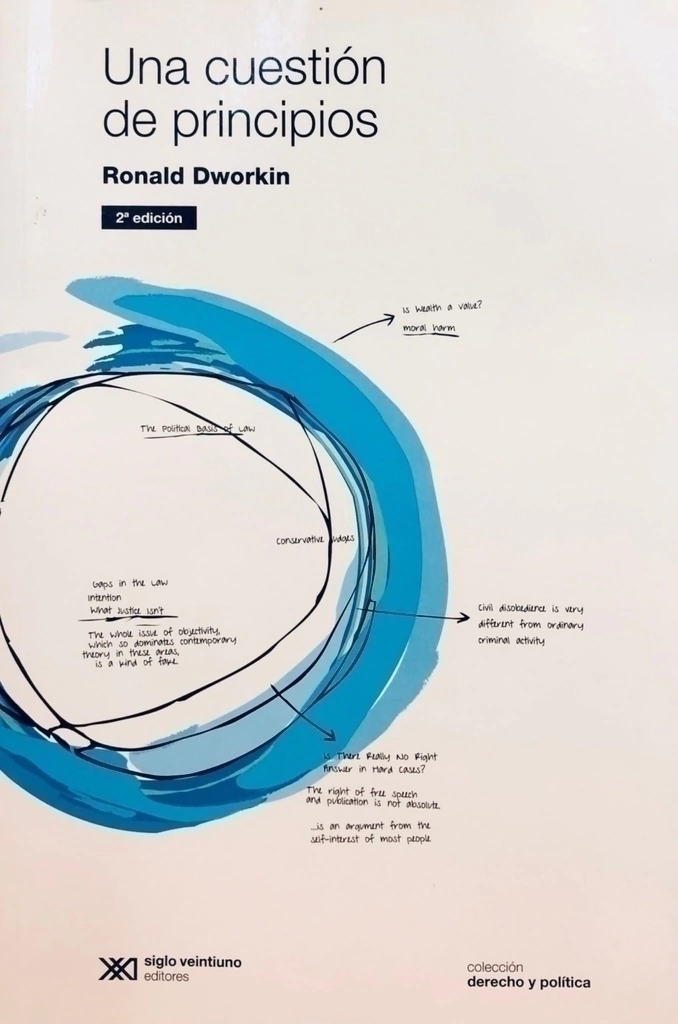 Una cuestión
de principios
Ronald Dworkin
2ª edición
Is Wealth a value?
moral harm
The Political Basis of Law
Conservative Judges
Gaps in the Law
Intention
What Justice Isn't
The whole issue of objectivity,
which so dominates contemporary
theory in these areas,
is a kind of fake
Civil disobedience is very
different from ordinary
criminal activity
Is There Really No Right
Answer in Hard Cases?
The right of free speech
and publication is not absolute.
...is an argument from the
self-interest of most people
siglo veintiuno
editores
colección
derecho y política